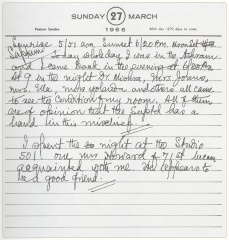 SUNDAY 27 MARCH
Passion Sunday
1966
Sunrise 5/51 am Sunset 6/20 P.m.
Today whole day I was in the Ashram
and I came back in the evening at
At 9 in the night Dr Mishra, Mrs.
Mrs. and others all came
to see the condition of my room. All of them
are of opinion that the Supdt has a
hand in this mischief!
I spent the night at the Studio
501. One Mr Howard E 71 st became
acquainted with me. He appears to
be a good friend.